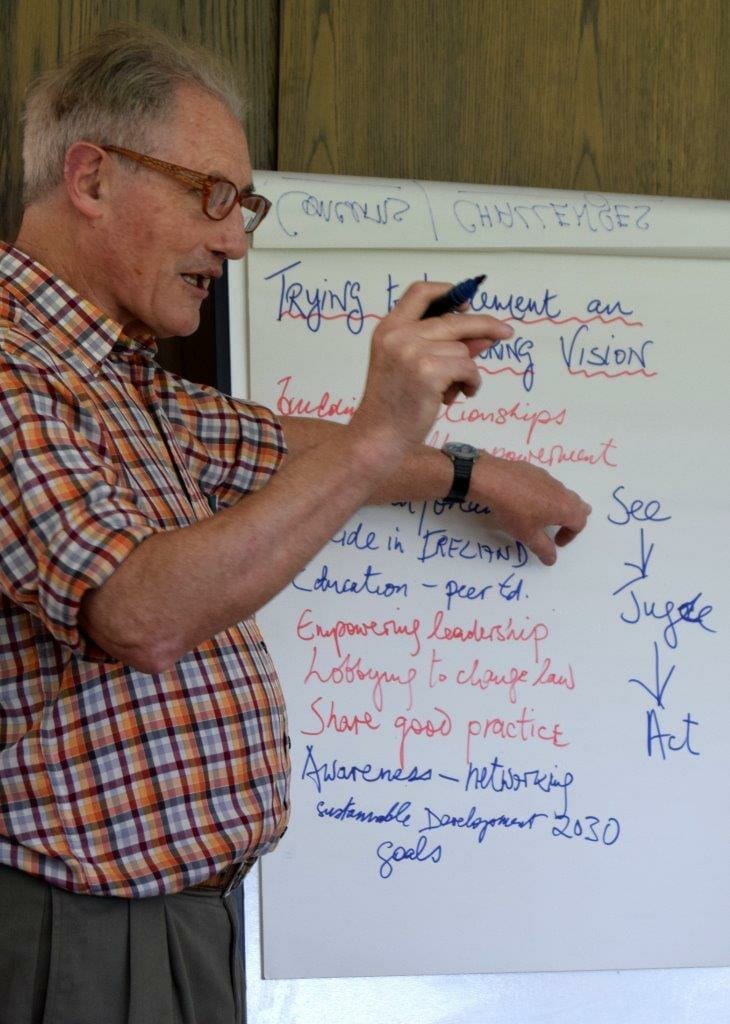 CONCERNS / CHALLENGES
TRYING to an
VISION
empowerment
in IRELAND
Education – peer Ed.
Empowering leadership
Lobbying to change law
Share good practice
Awareness – networking
Sustainable Development 2030
goals
See
Jugde
Act